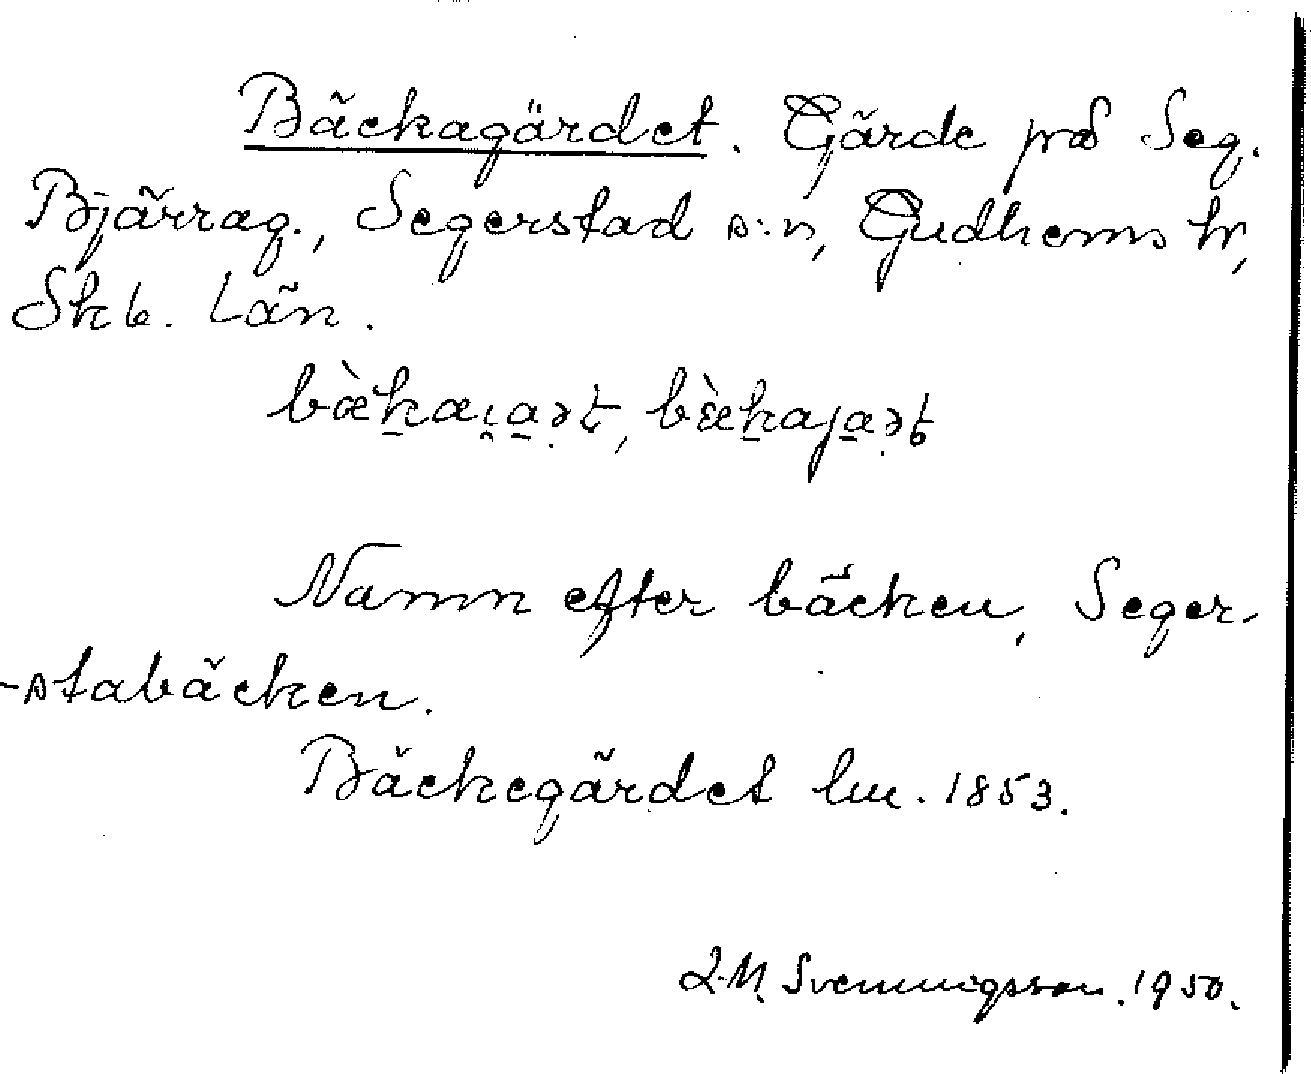 Bäckagärdet. Gärde på Seg.
Bjärrag., Segerstad s:n, Gudhems hr,
Skb. Län.
bæ̀ḵaı̯a̱ꝛt, bæ̀ḵaja̱ꝛt
Namn efter bäcken, Seger-
-stabäcken.
Bäckegärdet lm. 1853.
L.M. Svenningsson. 1950.